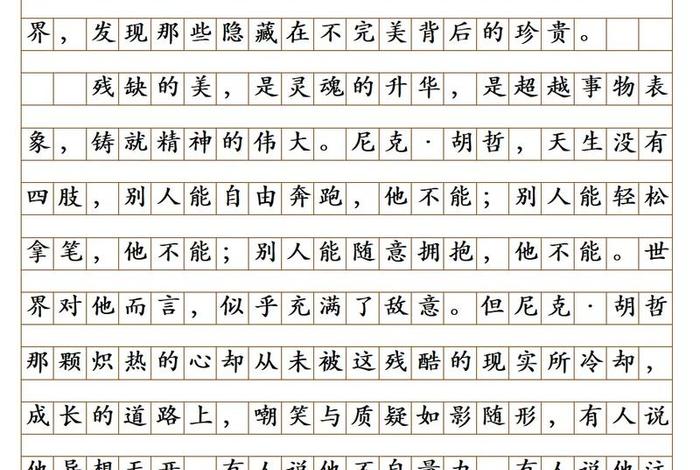 界，发现那些隐藏在不完美背后的珍贵。
残缺的美，是灵魂的升华，是超越事物表
象，铸就精神的伟大。尼克·胡哲，天生没有
四肢，别人能自由奔跑，他不能；别人能轻松
拿笔，他不能；别人能随意拥抱，他不能。世
界对他而言，似乎充满了敌意。但尼克·胡哲
那颗炽热的心却从未被这残酷的现实所冷却，
成长的道路上，嘲笑与质疑如影随形，有人说
他异想天开，有人说他不自量力，有人说他这